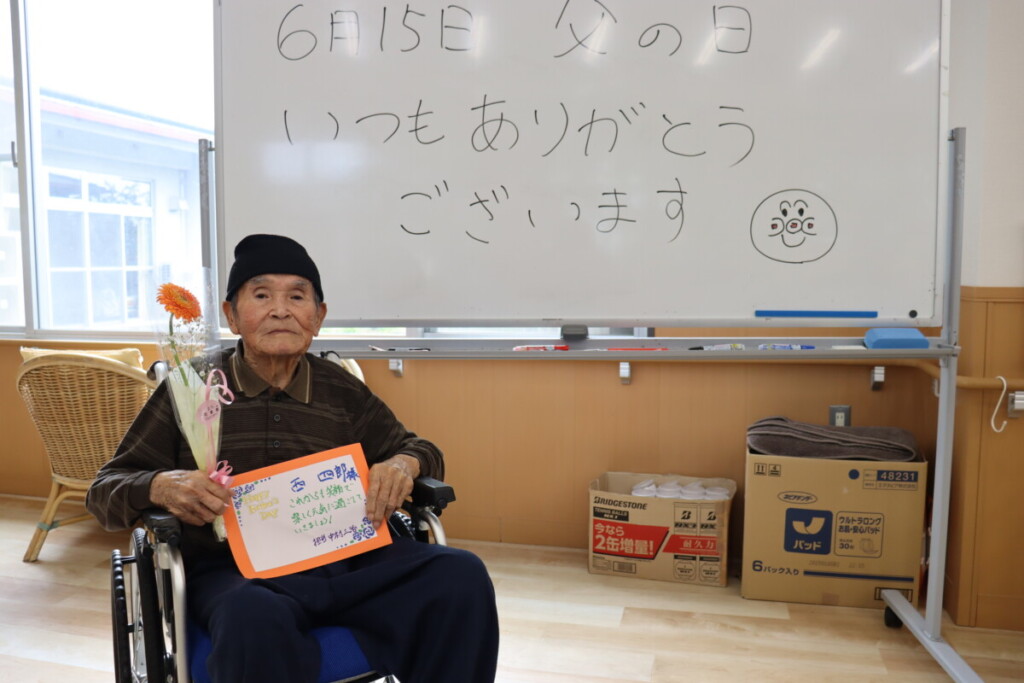 6月15日 父の日
いつもありがとう
ございます
HAPPY
Father's
DAY!
西 四郎様
これからも笑顔で
楽しくお過ごし
BRIDGESTONE
TENNIS BALLS
今なら
2缶増量!
耐久力
48231
パッド
ウルトラロング
お徳・安心パッド
30枚
6パック入り